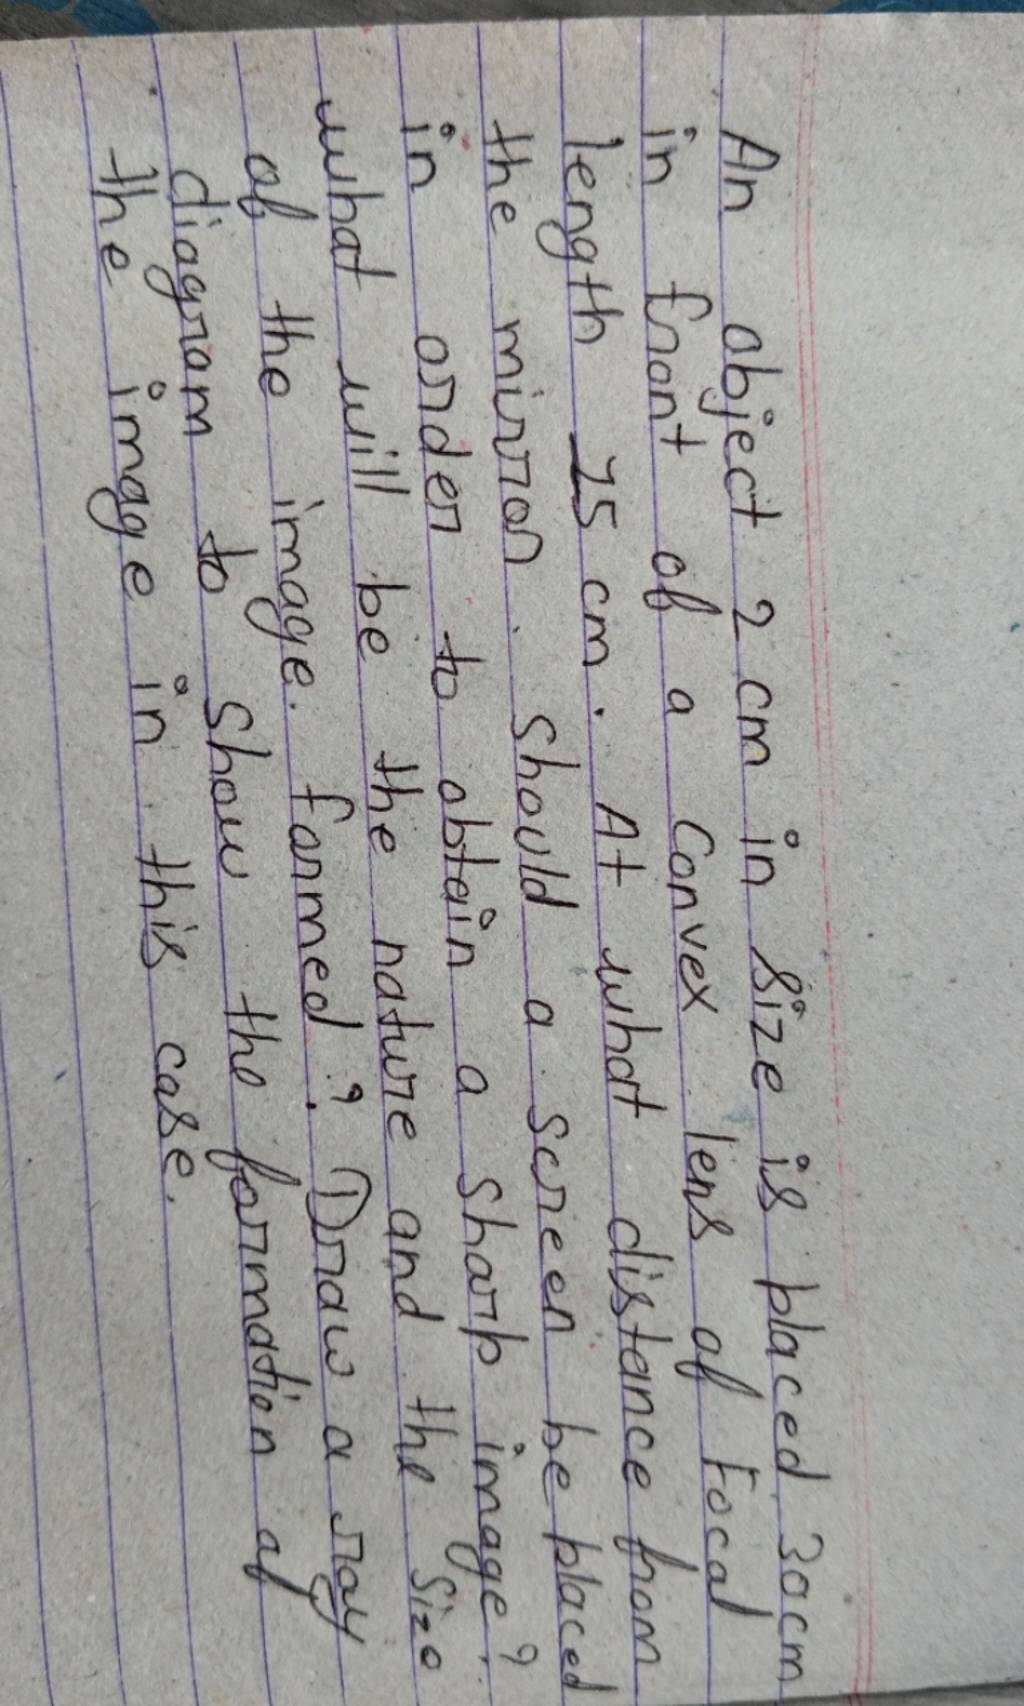 An object 2 cm in size is placed 30cm
in front of a convex lens of focal
length 15 cm. At what distance from
the mirror should a screen be placed
in order to obtain a sharp image?
what will be the nature and the size
of the image. formed? Draw a ray
diagram to show the formation of
the image in this case.